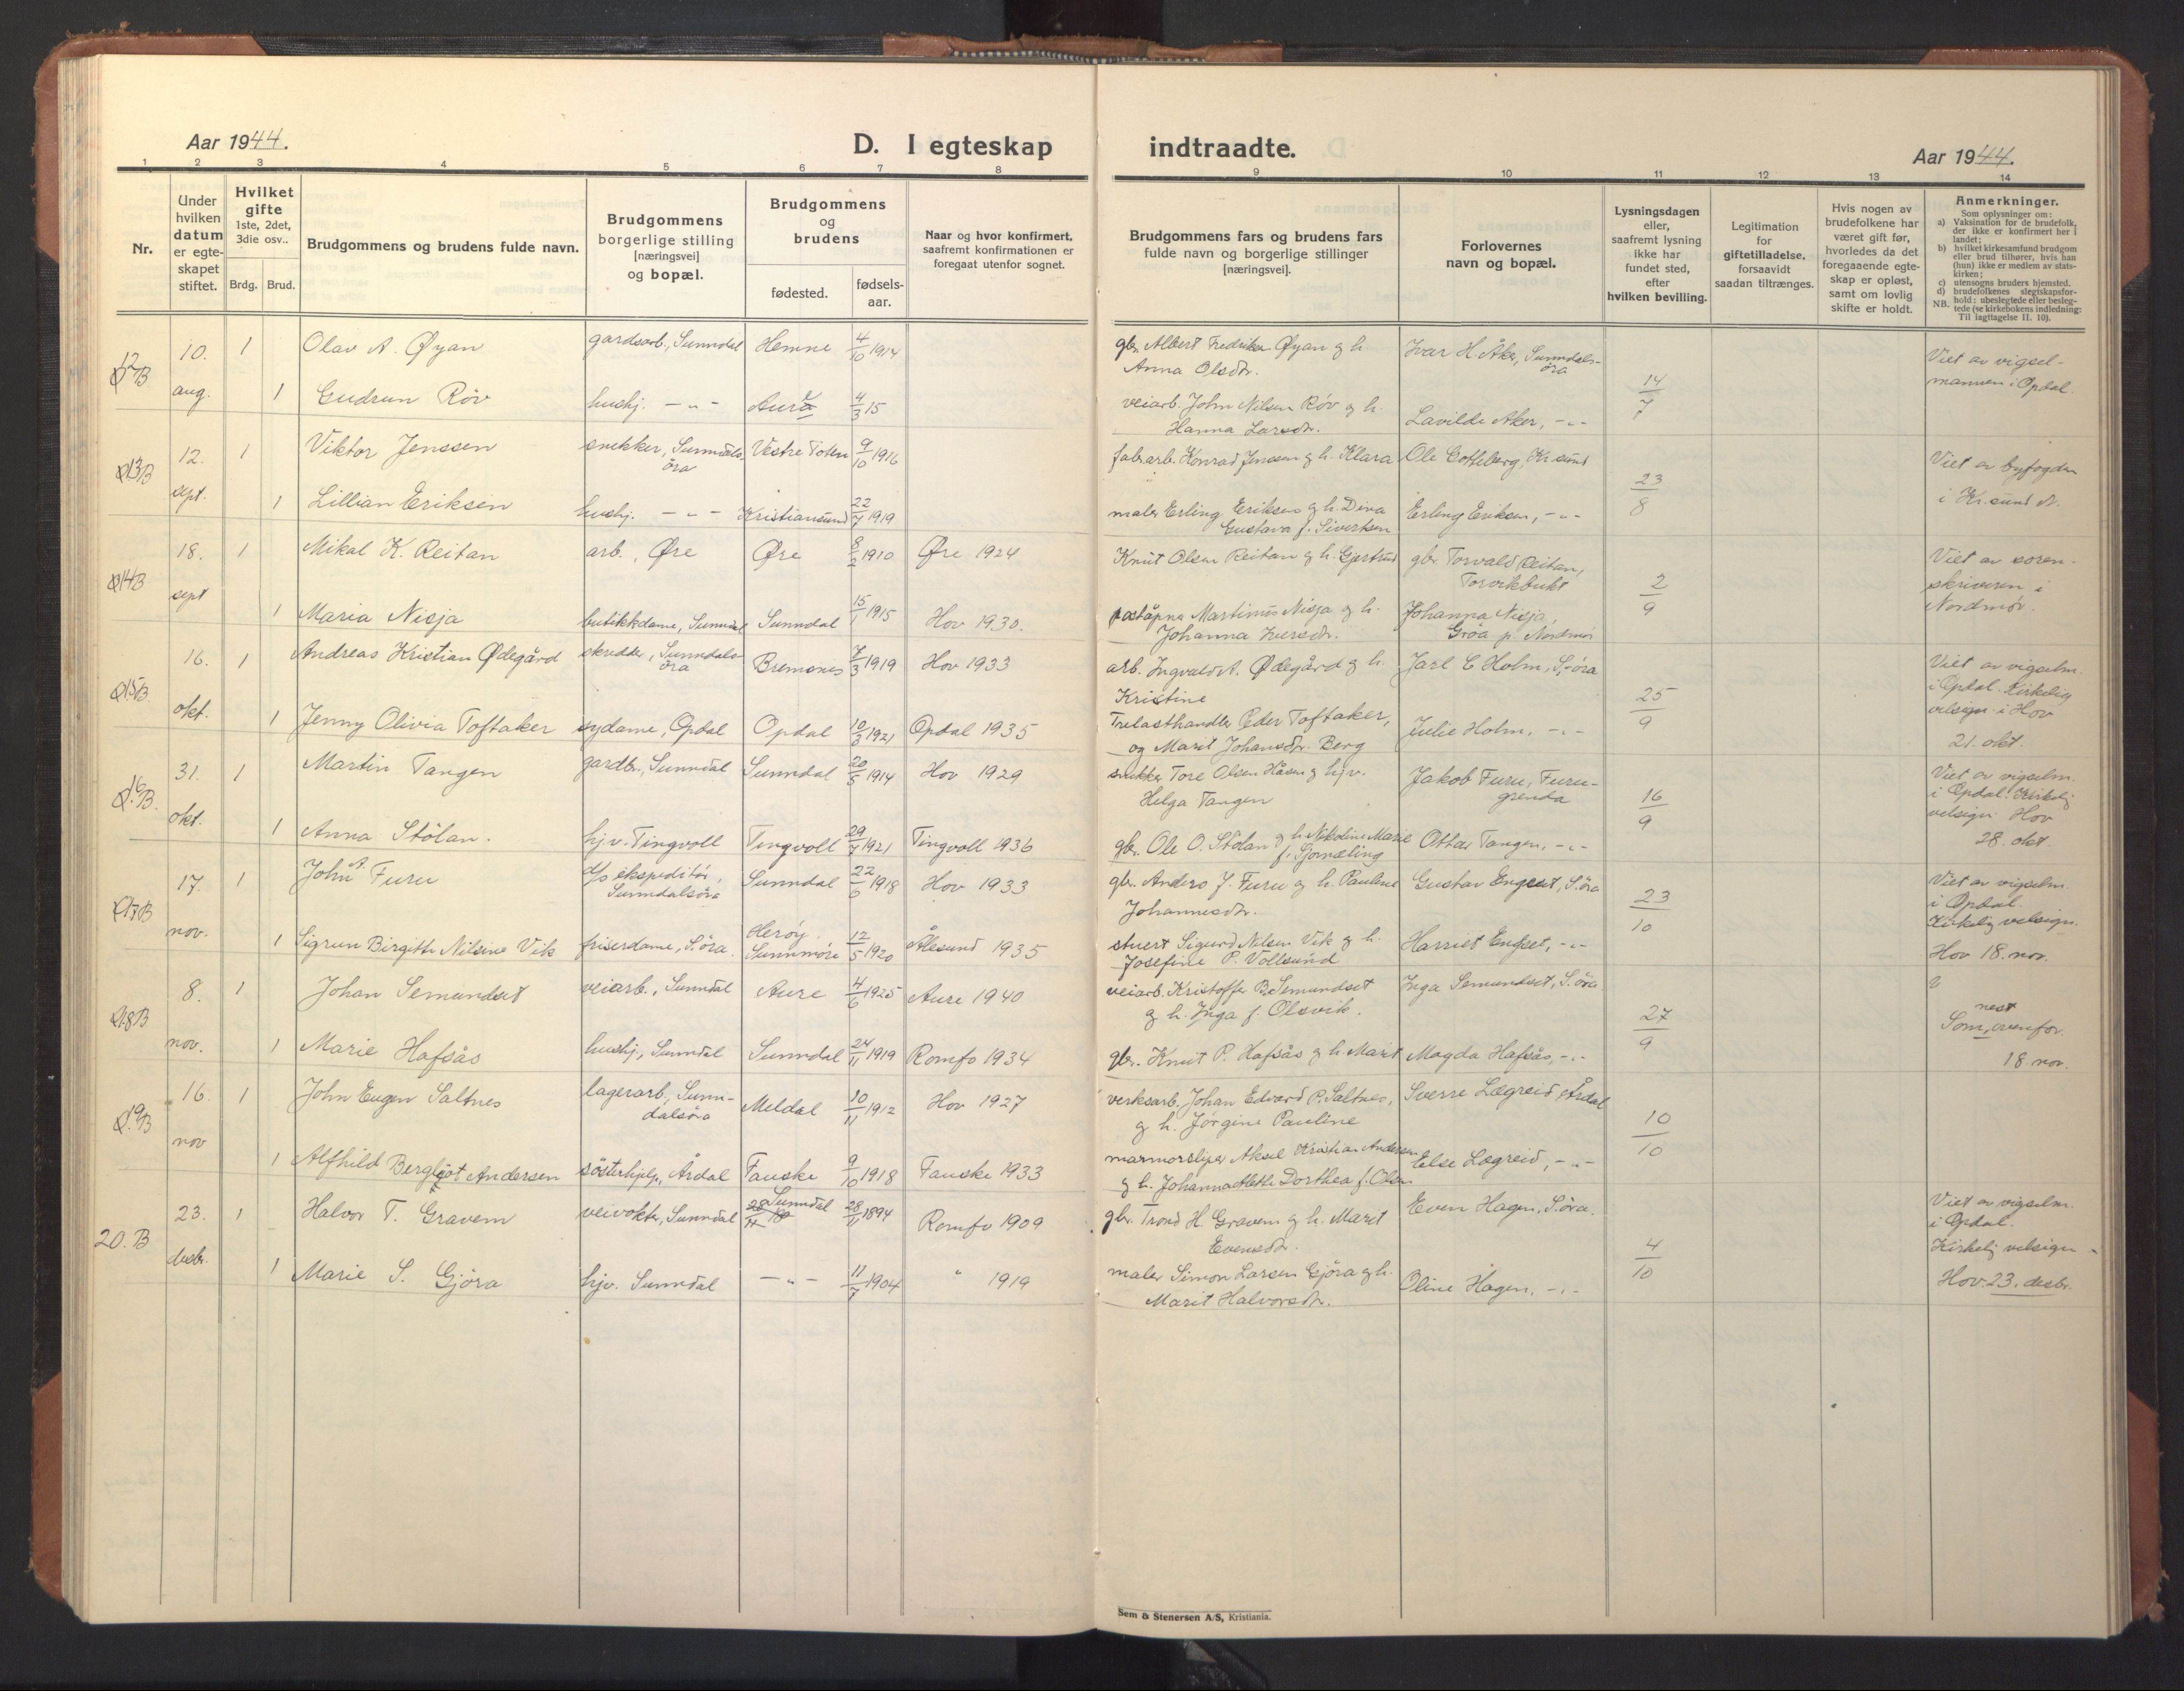 Aar 1944.
D. I egteskap
indtraadte.
Aar 1944.
1 2 3 4 5 6 7 8 9 10 11 12 13 14
Nr.
Under hvilken datum er egteskapet stiftet.
Hvilket gifte 1ste, 2det, 3die osv..
Brdg. Brud.
Brudgommens og brudens fulde navn.
Brudgommens borgerlige stilling [næringsvei] og bopæl.
Brudgommens og brudens
fødested. fødsels-aar.
Naar og hvor konfirmert, saafremt konfirmationen er foregaat utenfor sognet.
Brudgommens fars og brudens fars fulde navn og borgerlige stillinger [næringsvei].
Forlovernes navn og bopæl.
Lysningsdagen eller, saafremt lysning ikke har fundet sted, efter hvilken bevilling.
Legitimation for giftetilladelse, forsaavidt saadan tiltrænges.
Hvis nogen av brudefolkene har været gift før, hvorledes da det foregaaende egteskap er opløst, samt om lovlig skifte er holdt.
Anmerkninger.
Som oplysninger om:
a) Vaksination for de brudefolk, der ikke er konfirmert her i landet;
b) hvilket kirkesamfund brudgom eller brud tilhører, hvis han (hun) ikke er medlem av statskirken;
c) utensogns bruders hjemsted.
d) brudefolkenes slegtskapsforhold: ubeslegtede eller beslegtede (se kirkebokens indledning:
NB. Til iagttagelse II. 10).
12 B 10. aug. 1 Olav A. Øyan gardsarb., Sunndal Hemne 4/10 1914
gbr. Albert Fredriksen Øyan g. h. Anna Olsdtr. Ivar H. Åker, Sunndalsöra 14/7 Viet av vigselmannen i Opdal.
1 Gudrun Röv hushj. -"- Aure 4/3 15
veiarb. John Nilsen Röv g. h. Hanna Larsdtr. Lavilde Aker, -"-
13 B 12. sept. 1 Viktor Jenssen snekker, Sunndalsöra Vestre Toten 9/10 1916
fab.arb. Konrad Jenssen g. h. Klara Ole Gotteberg, Kr.sund 23/8 Viet av byfogden i Kr.sund N.
1 Lillian Eriksen hushj. -"- Kristiansund 22/7 1919
maler Erling Eriksen g. h. Dina Gustava f. Sivertsen Erling Eriksen, -"-
14 B 18. sept 1 Mikal K. Reitan arb., Øre Øre 8/2 1910 Øre 1924
Knut Olsen Reitan g. h. Gjertrud gbr. Torvald Reitan, Torvikbukt 2/9 Viet av sorenskriveren i Nordmør.
1 Maria Nisja butikkdame, Sunndal Sunndal 15/1 1915 Hov 1930.
poståpner Martinus Nisja g. h. Johanna Iversdtr. Johanna Nisja, Gröa p. Nordmör
15 B 16. okt. 1 Andreas Kristian Ødegård skredder, Sunndalsöra Bremsnes 7/3 1919 Hov 1933
arb. Ingvald A. Ødegård g. h. Kristine Jarl C Holm, S.öra 25/9 Viet av vigselm. i Opdal. Kirkelig velsign. i Hov 21. okt.
1 Jenny Olivia Toftaker sydame, Opdal Opdal 10/3 1921 Opdal 1935
Trelasthandler Peder Toftaker, og Marit Johansdtr. Berg Julie Holm, -"-
16 B. 31. okt. 1 Martin Tangen gardbr., Sunndal Sunndal 20/5 1914 Hov 1929
snekker Tore Olsen Håsen g. hjv. Helga Tangen Jakob Furu, Furugrenda 16/9 Viet av vigselm. i Opdal. Kirkelig velsign. Hov 28. okt.
1 Anna Stölan. hj.v. Tingvoll Tingvoll 29/7 1921 Tingvoll 1936
gbr. Ole O. Stölan g. h. Nikoline Marie f. Gjømæling Ottar Tangen, -"-
17 B 17. nov. 1 John A. Furu d/s ekspeditör, Sunndalsöra Sunndal 22/6 1918 Hov 1933
gbr. Anders J. Furu g. h. Pauline Johannesdtr. Gustav Engset, S.öra 23/10 Viet av vigselm. i Opdal. Kirkelig velsign. Hov 18. nov.
1 Sigrun Birgith Nilsine Vik friserdame, S.öra. Heröy Sunnmöre 12/5 1920 Ålesund 1935
stuert Sigurd Nilsen Vik g. h. Josefine P. Vollsund Harriet Engset, -"-
18 B 8. nov. 1 Johan Semundset veiarb., Sunndal Aure 4/6 1925 Aure 1940
veiarb. Kristoffer B. Semundset g. h. Inga f. Olsvik. Inga Semundset, S.öra 27/9 Som nest ovenfor. 18 nov.
1 Marie Hafsås hushj., Sunndal Sunndal 24/11 1919 Romfo 1934
gbr. Knut P. Hafsås g. h. Marit Magda Hafsås, -"-
19 B 16. nov 1 John Eugen Saltnes lagerarb., Sunndalsöra Meldal 10/11 1912 Hov 1927
verksarb. Johan Edvard P. Saltnes, g. h. Jörgine Pauline Sverre Lægreid, Årdal 10/10
1 Alfhild Bergljot Andersen sösterhjelp., Årdal Fauske 9/10 1918 Fauske 1933
marmorsliper Aksel Kristian Andersen g. h. Johanna Aleth Dorthea f. Olsen Else Lægreid, -"-
20. B 23. desbr. 1 Halvor T. Gravem veivokter, Sunndal Sunndal 28/11 1894 Romfo 1909
gbr. Trond H. Gravem g. h. Marit Evensdtr. Even Hagen, S.öra. 4/10 Viet av vigselm. i Opdal. Kirkelig velsign. Hov 23. desbr.
1 Marie S. Gjöra hjv. Sunndal -"- 11/7 1904 " 1919
maler Simon Larsen Gjöra g. h. Marit Halvorsdtr. Oline Hagen, -"-
Sem & Stenersen A/S, Kristiania.